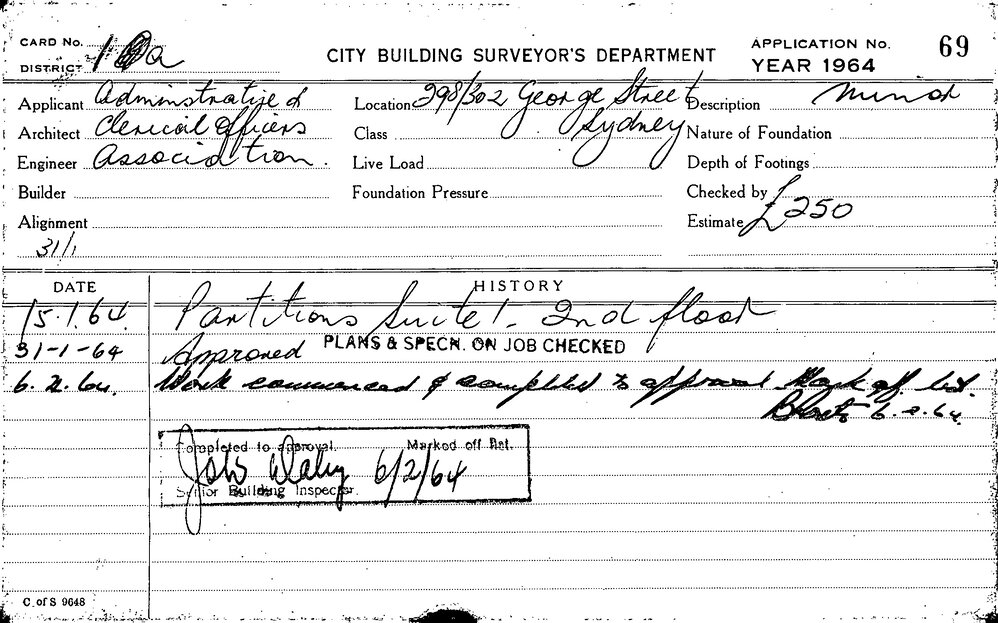 CARD No.
CITY BUILDING SURVEYOR'S DEPARTMENT
APPLICATION No. 69
DISTRICT
YEAR 1964
Applicant Administrative &
Location 298/302 George Street
Description Minor
Architect Clerical Officers
Class Sydney
Nature of Foundation
Engineer Association.
Live Load
Depth of Footings
Builder
Foundation Pressure
Checked by
Alignment
Estimate £250
31/1
DATE HISTORY
15.1.64. Partitions Suite 1. 2nd floor
31-1-64 Approved PLANS & SPECN. ON JOB CHECKED
6.2.64. Work commenced & completed to approval Mark off list.
6.2.64.
Completed to approval. Marked off Ret.
Daley 6/2/64
Senior Building Inspector.
C. of S 9648